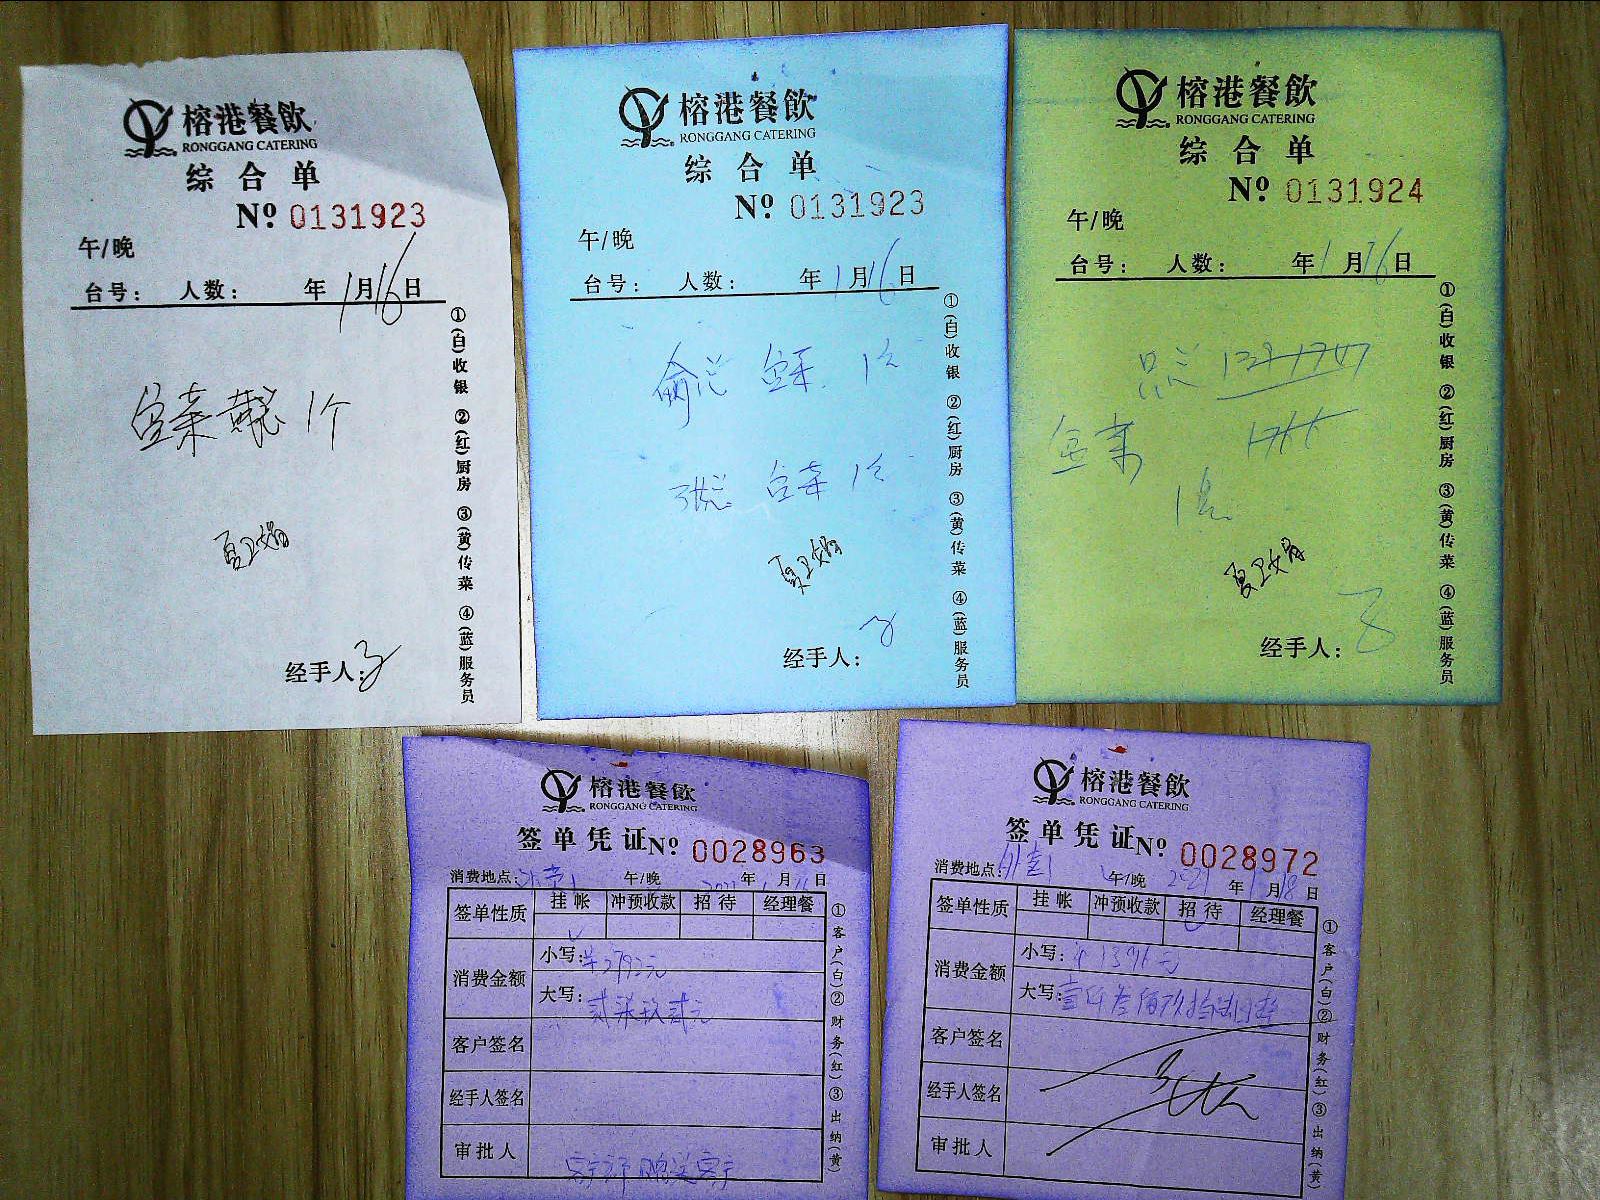 榕港餐飲
RONGGANG CATERING
综合单
Nº 0131923
午/晚
台号： 人数： 年1月16日
盆菜 1个
经手人：
①(白)收银 ②(红)厨房 ③(黄)传菜 ④(蓝)服务员
榕港餐飲
RONGGANG CATERING
综合单
Nº 0131923
午/晚
台号： 人数： 年1月16日
俞总 盆菜 1个
张总 盆菜 1个
经手人：
①(白)收银 ②(红)厨房 ③(黄)传菜 ④(蓝)服务员
榕港餐飲
RONGGANG CATERING
综合单
Nº 0131924
午/晚
台号： 人数： 年1月16日
盆菜
经手人：
①(白)收银 ②(红)厨房 ③(黄)传菜 ④(蓝)服务员
榕港餐飲
RONGGANG CATERING
签单凭证Nº 0028963
消费地点： 午/晚 年 月 日
签单性质 挂帐 冲预收款 招待 经理餐
消费金额 小写：¥2792元
大写：贰柒玖贰元
客户签名
经手人签名
审批人
①客户(白)②财务(红)③出纳(黄)
榕港餐飲
RONGGANG CATERING
签单凭证Nº 0028972
消费地点：外卖 午/晚 2021年1月18日
签单性质 挂帐 冲预收款 招待 经理餐
消费金额 小写：¥1396元
大写：壹仟叁佰玖拾陆圆整
客户签名
经手人签名
审批人
①客户(白)②财务(红)③出纳(黄)